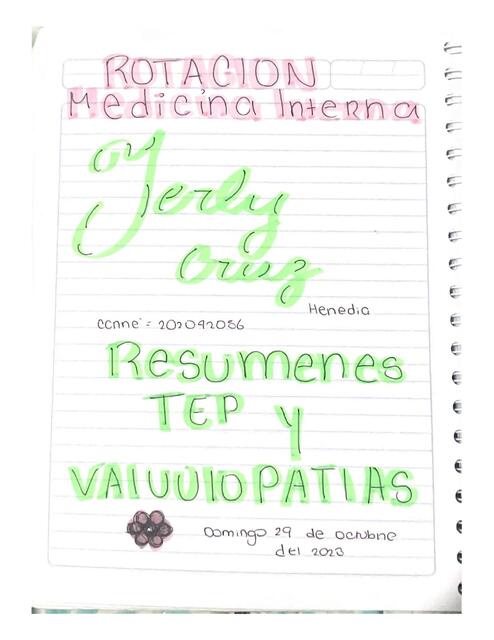 ROTACION
Medicina Interna
Yerly
Cruz
Heredia
carné: 202042056
Resumenes
TEP y
VALVULOPATIAS
Domingo 29 de octubre
del 2023